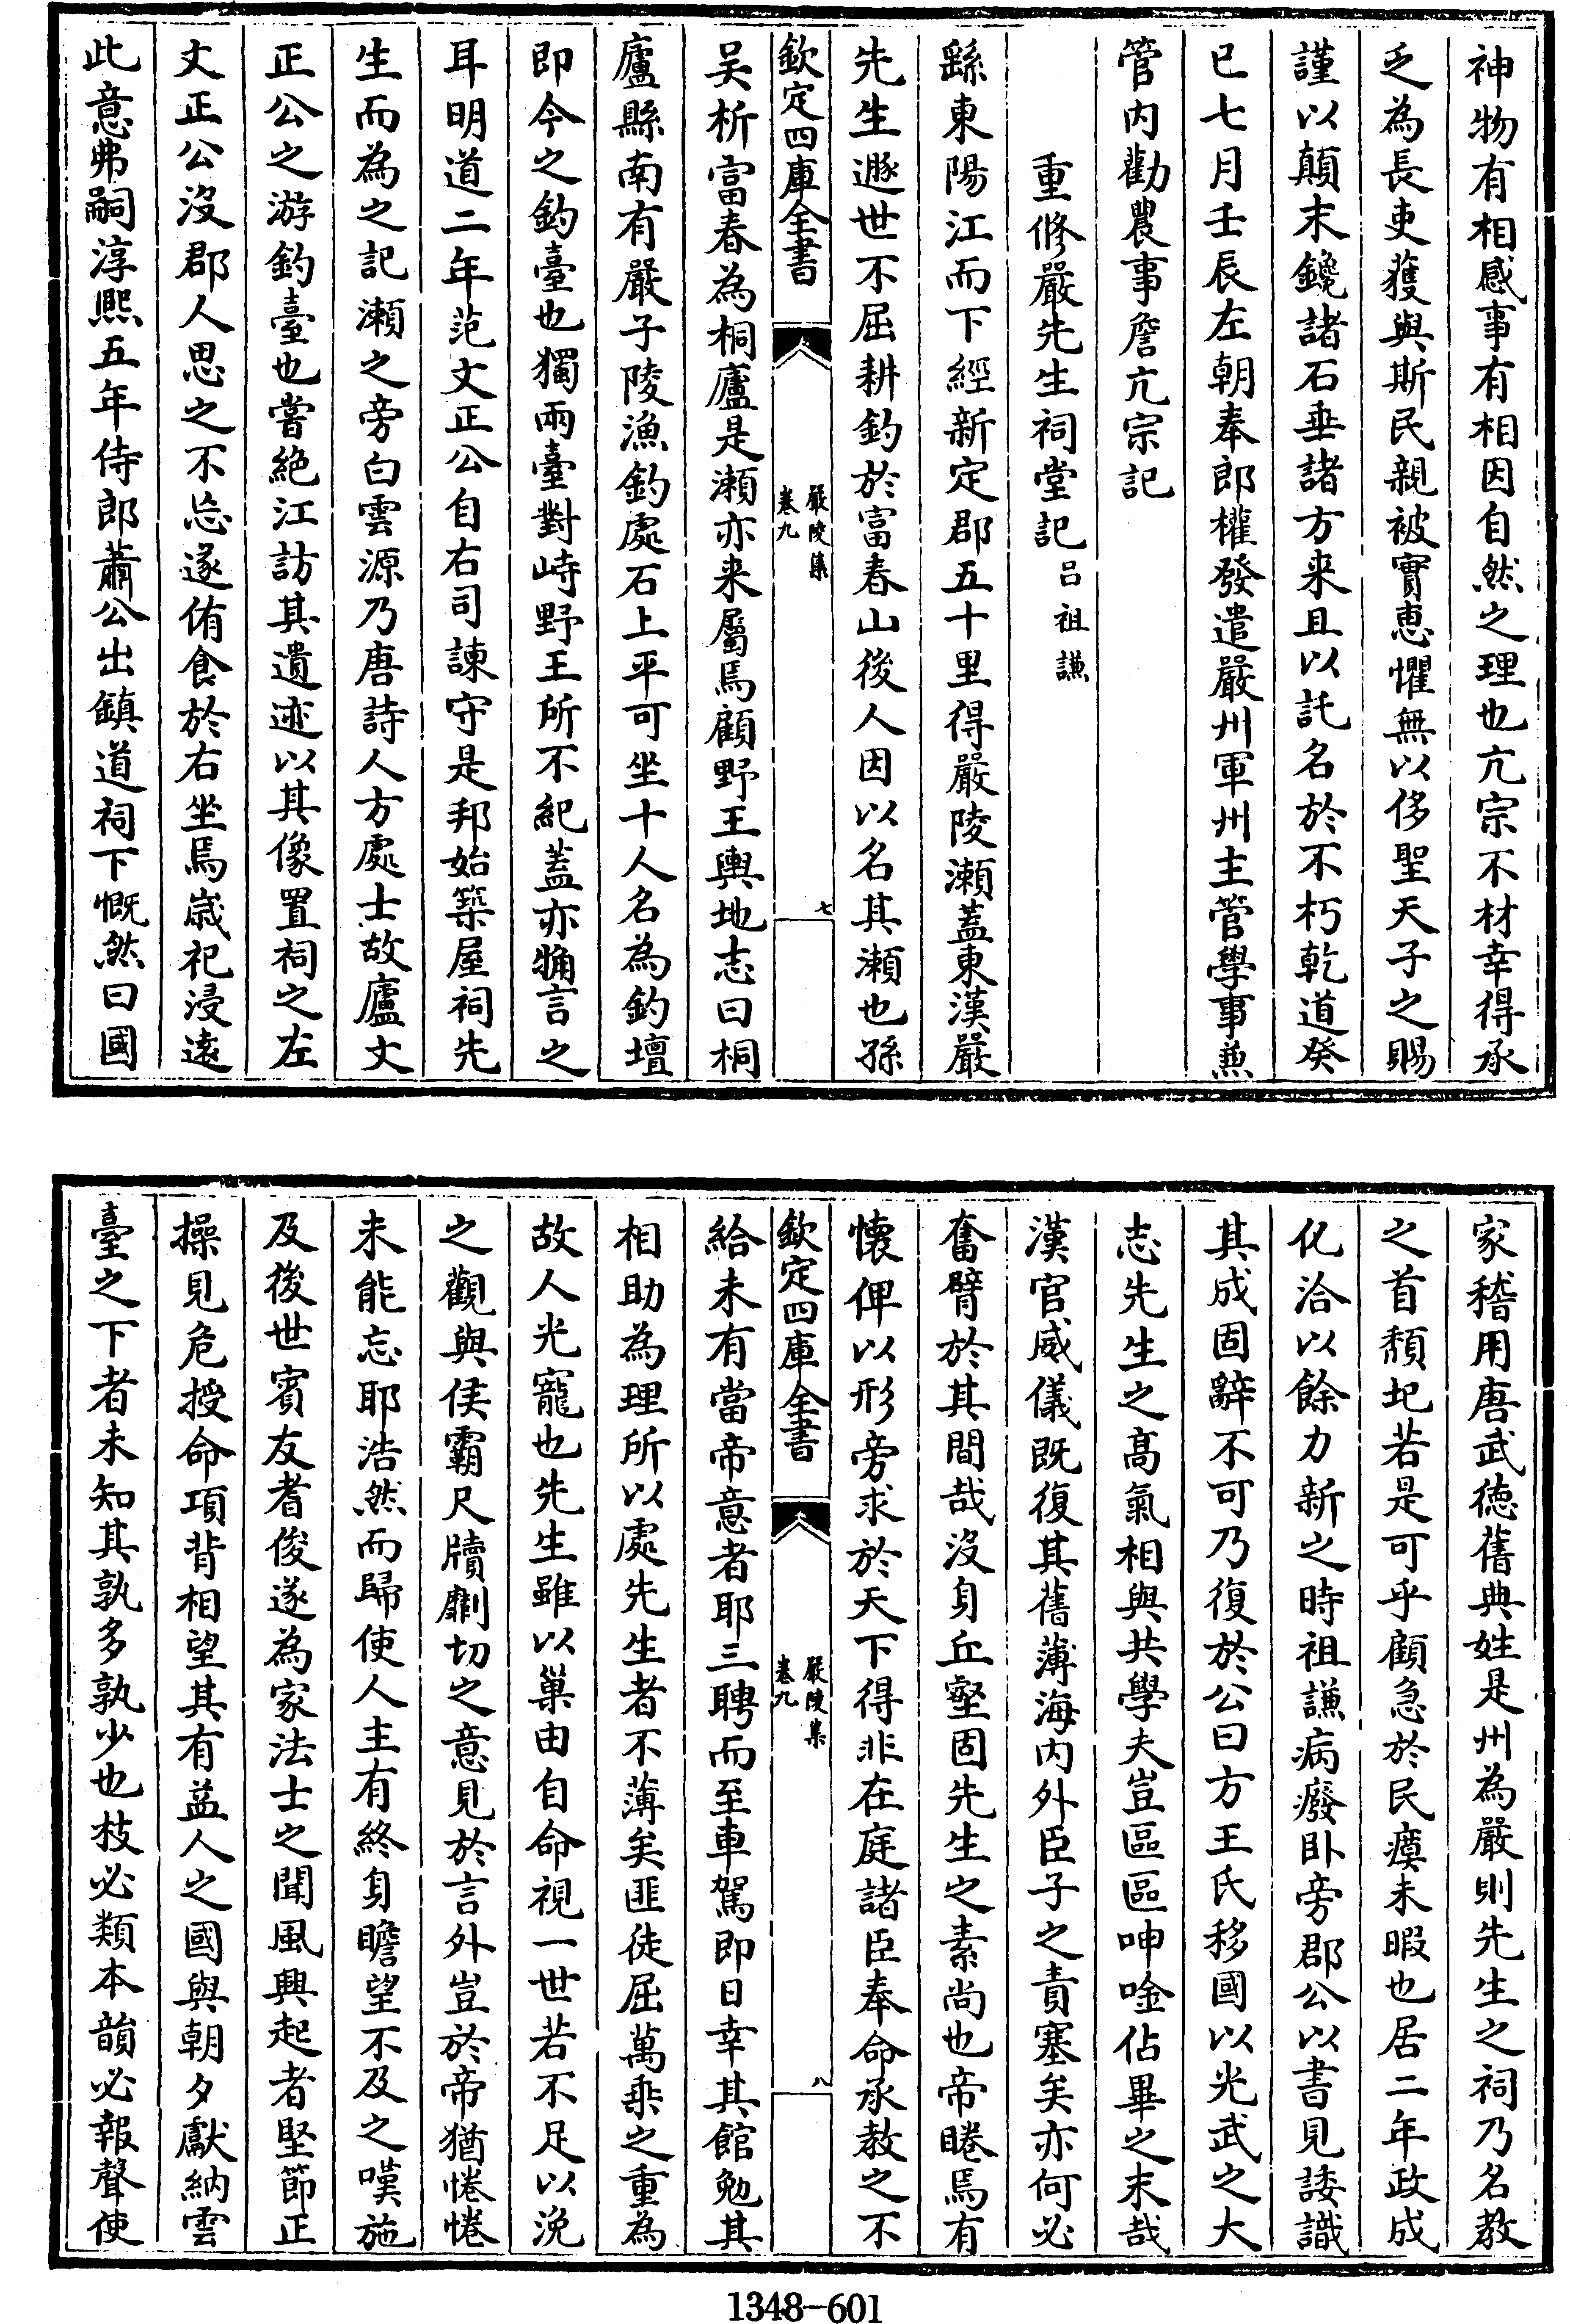 神物有相感事有相因自然之理也亢宗不材幸得承
乏為長吏獲與斯民親被實惠懼無以侈聖天子之賜
謹以顛末鑱諸石垂諸方来且以託名於不朽乾道癸
已七月壬辰左朝奉郎權發遣嚴州軍州主管學事兼
管内勸農事詹亢宗記
重修嚴先生祠堂記吕祖謙
繇東陽江而下經新定郡五十里得嚴陵瀬蓋東漢嚴
先生遯世不屈耕釣於富春山後人因以名其瀬也孫
欽定四庫全書
嚴陵集
卷九
七
吴析富春為桐廬是瀬亦来屬焉顧野王輿地志曰桐
廬縣南有嚴子陵漁釣處石上平可坐十人名為釣壇
即今之釣臺也獨兩臺對峙野王所不紀蓋亦犕言之
耳明道二年范文正公自右司諫守是邦始築屋祠先
生而為之記瀬之旁白雲源乃唐詩人方處士故廬文
正公之游釣臺也嘗絶江訪其遺迹以其像置祠之左
文正公没郡人思之不忘遂侑食於右坐焉嵗祀浸遠
此意弗嗣淳熈五年侍郎蕭公出鎮道祠下慨然曰國
家稽用唐武徳舊典姓是州為嚴則先生之祠乃名教
之首頽圮若是可乎顧急於民瘼未暇也居二年政成
化洽以餘力新之時祖謙病癈卧旁郡公以書見諉識
其成固辭不可乃復於公曰方王氏移國以光武之大
志先生之髙氣相與共學夫豈區區呻唫佔畢之末哉
漢官威儀既復其舊薄海内外臣子之責塞矣亦何必
奮臂於其間哉没身丘壑固先生之素尚也帝睠焉有
懐俾以形旁求於天下得非在庭諸臣奉命承教之不
欽定四庫全書
嚴陵集
卷九
八
給未有當帝意者耶三聘而至車駕即日幸其館勉其
相助為理所以處先生者不薄矣匪徒屈萬乗之重為
故人光寵也先生雖以巢由自命視一世若不足以浼
之觀與侯霸尺牘劘切之意見於言外豈於帝猶惓惓
未能忘耶浩然而歸使人主有終身瞻望不及之嘆施
及後世賓友耆俊遂為家法士之聞風興起者堅節正
操見危授命項背相望其有益人之國與朝夕獻納雲
臺之下者未知其孰多孰少也枝必類本韻必報聲使
1348-601